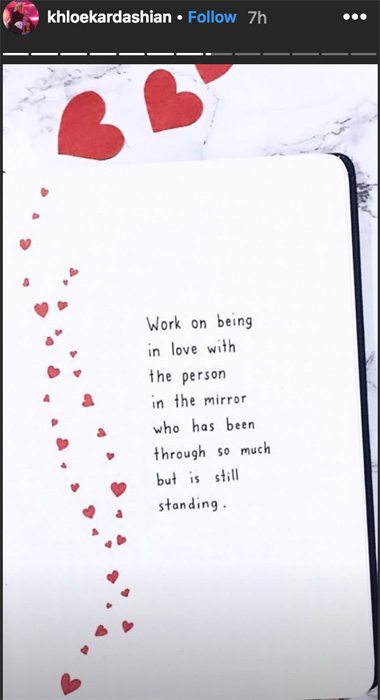 khloekardashian • Follow 7h
Work on being
in love with
the person
in the mirror
who has been
through so much
but is still
standing.